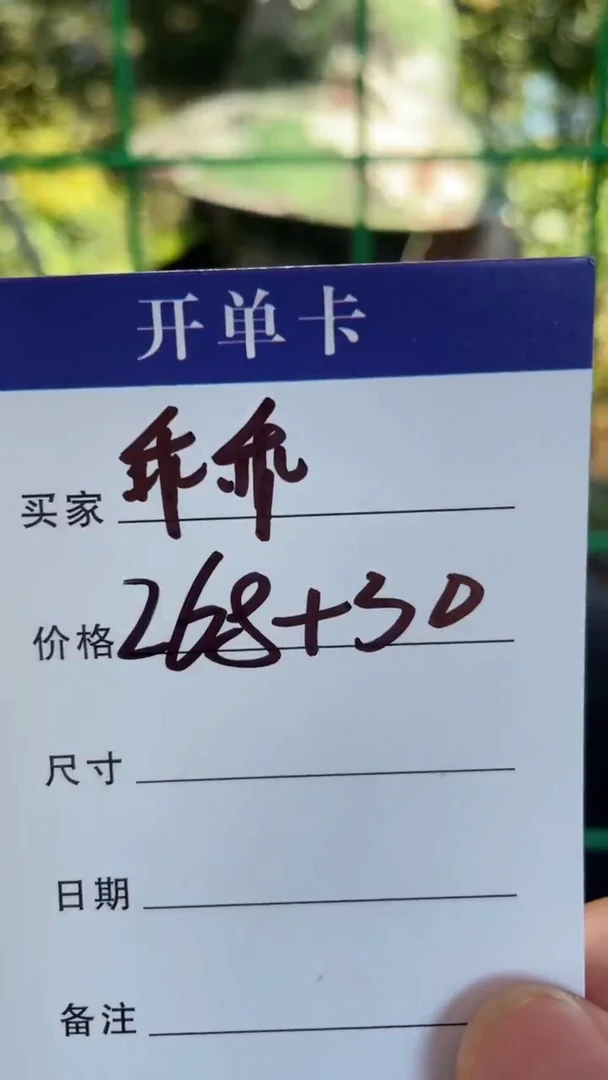 开单卡
买家 乖乖
价格 268+30
尺寸
日期
备注